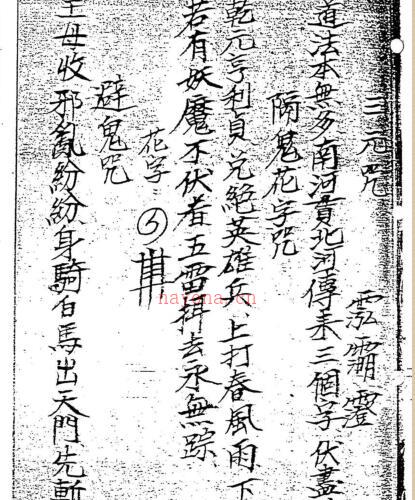 三元咒
道法本無多南河貫北河傳來三個字伏盡
隔鬼花字咒
乾元亨利貞兌絕英雄兵、上打春風雨、下
若有妖魔不伏者五雷揖去永無踪
花字
避鬼咒
王母收邪亂紛紛身騎白馬出天門先斬
hayona.cn